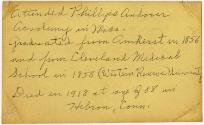 Attended Phillips Andover
Academy in Mass.
graduated from Amherst in 1856
and from Cleveland Medical
School in 1858 (Western Reserve University)
Died in 1918 at age of 88 in
Hebron, Conn.